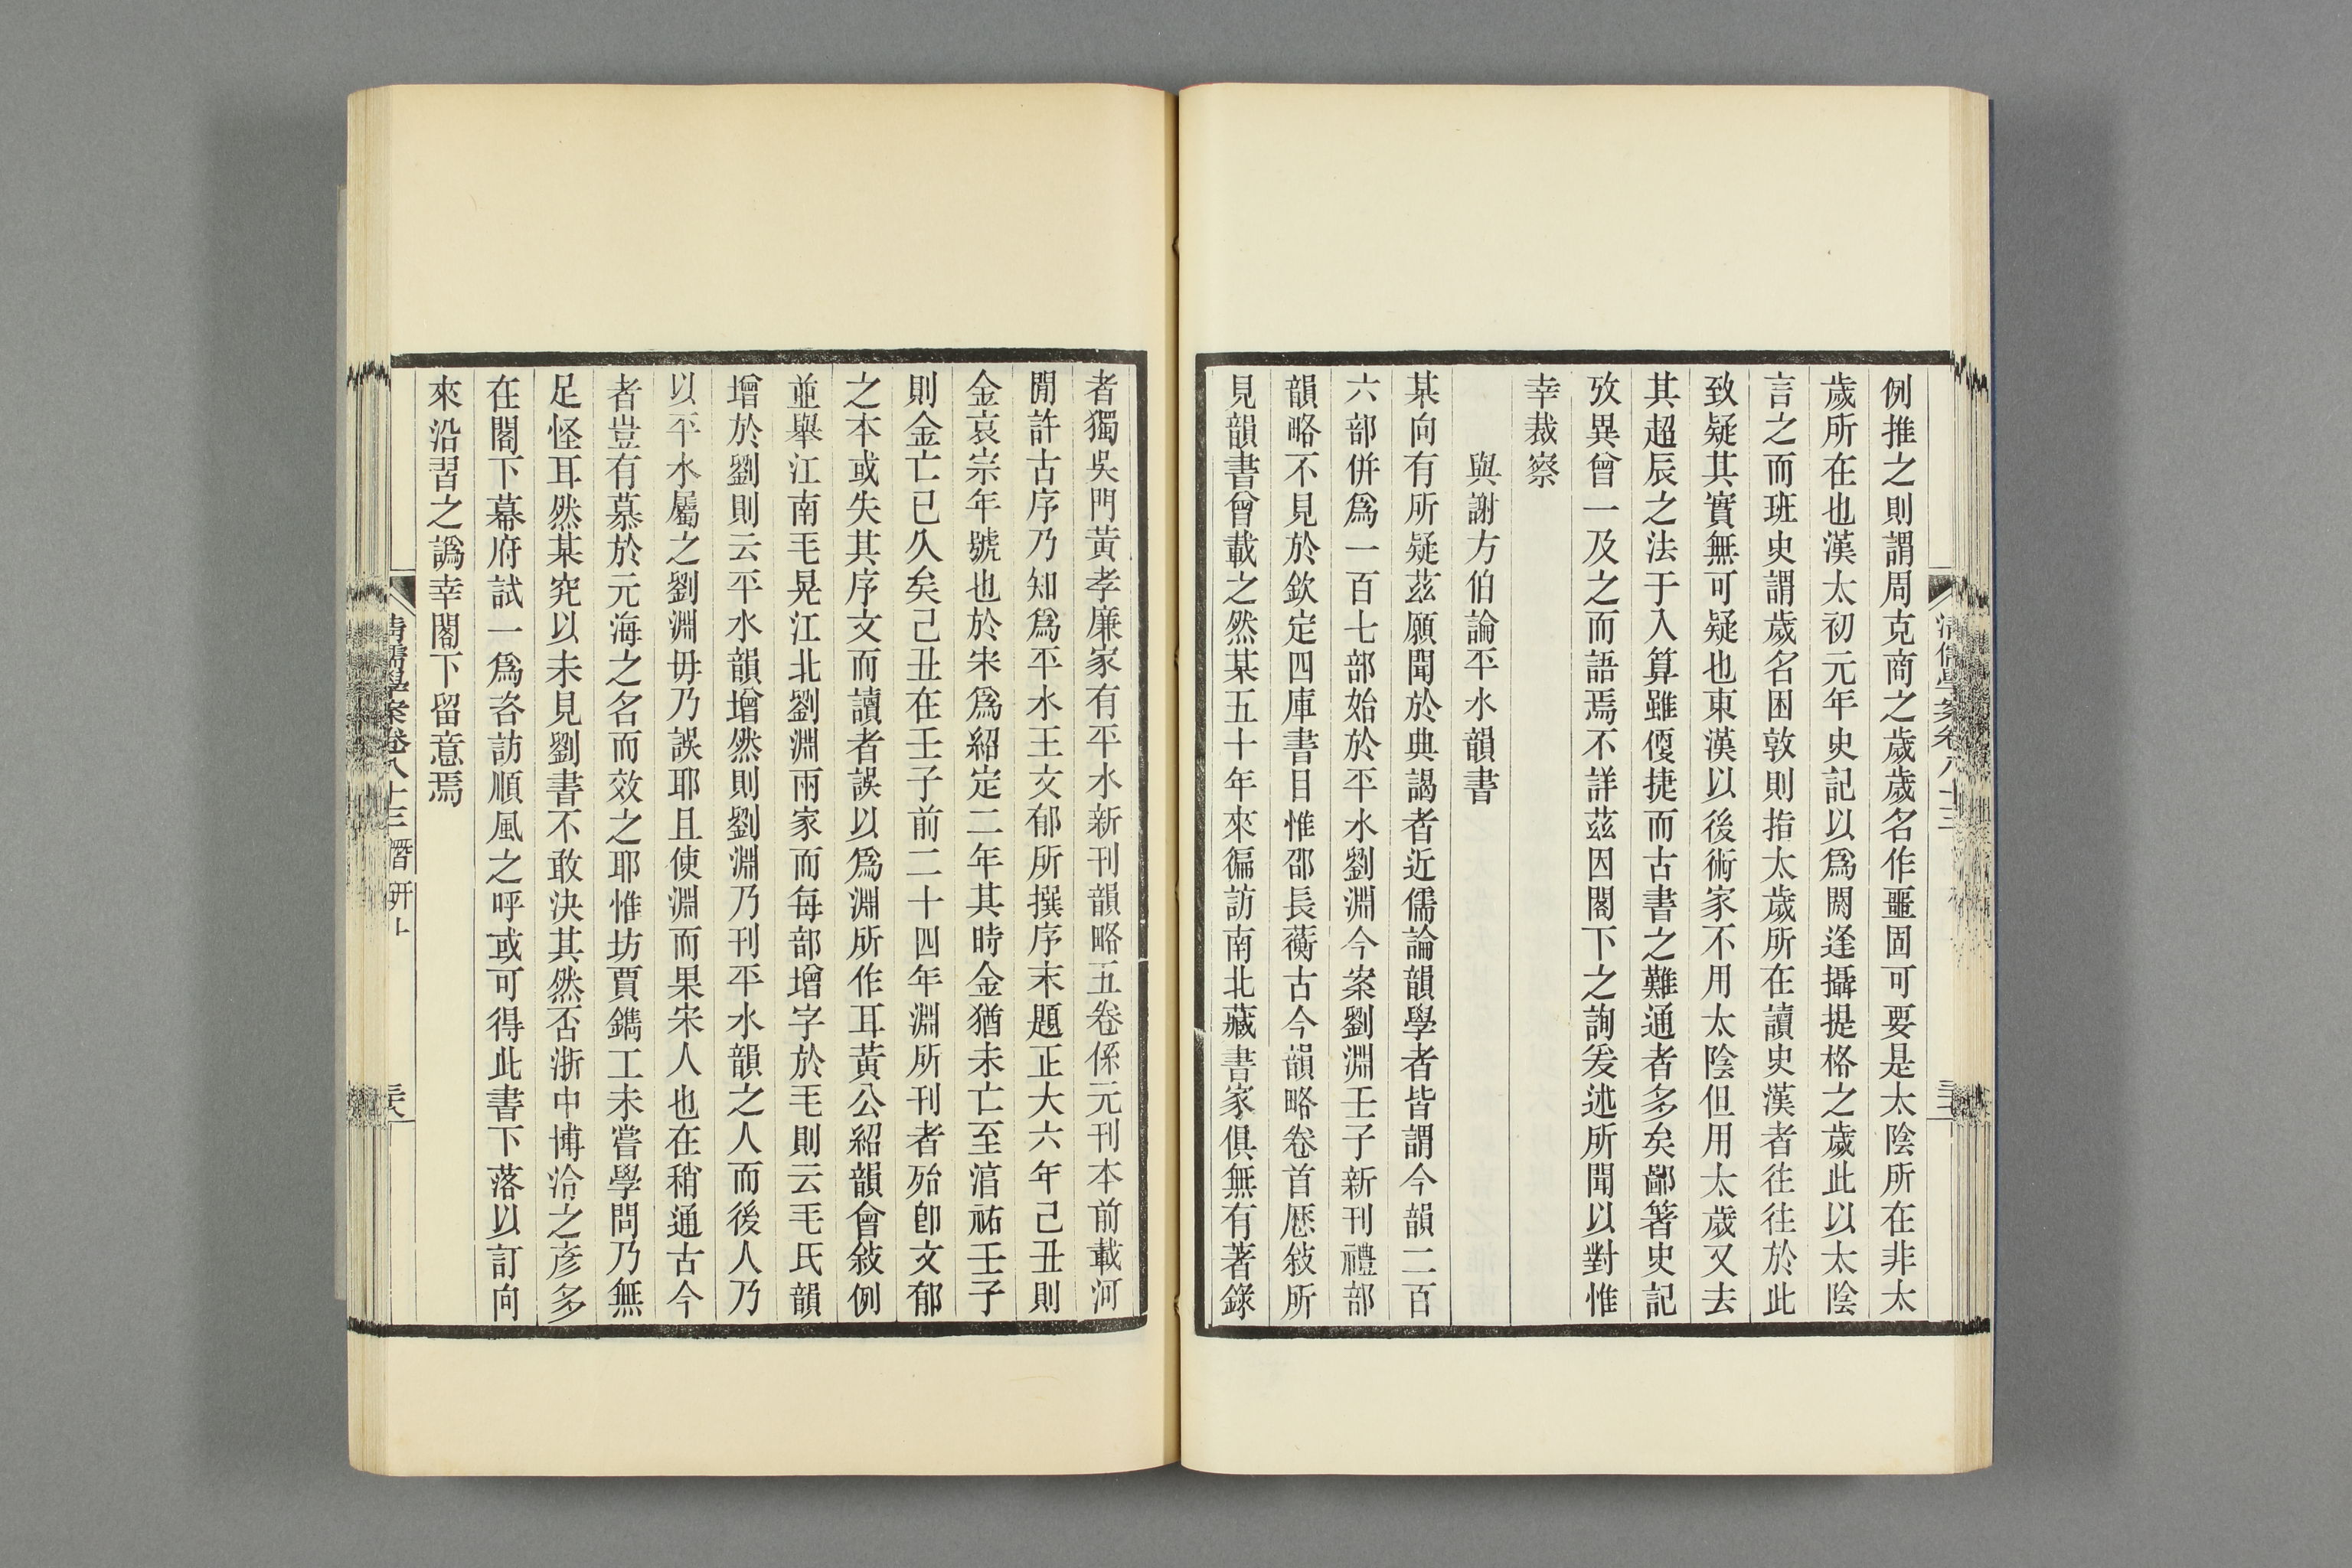 例推之則謂周克商之歲歲名作噩固可要是太陰所在非太
歲所在也漢太初元年史記以爲閼逢攝提格之歲此以太陰
言之而班史謂歲名困敦則指太歲所在讀史漢者往往於此
致疑其實無可疑也東漢以後術家不用太陰但用太歲又去
其超辰之法于入算雖𠊳捷而古書之難通者多矣鄙箸史記
攷異曾一及之而語焉不詳茲因閣下之詢爰述所聞以對惟
幸裁察
與謝方伯論平水韻書
某向有所疑茲願聞於典謁者近儒論韻學者皆謂今韻二百
六部併爲一百七部始於平水劉淵今案劉淵壬子新刊禮部
韻略不見於欽定四庫書目惟邵長蘅古今韻略卷首歷敍所
見韻書曾載之然某五十年來徧訪南北藏書家俱無有著錄
者獨吳門黃孝廉家有平水新刊韻略五卷係元刊本前載河
閒許古序乃知爲平水王文郁所撰序末題正大六年己丑則
金哀宗年號也於宋爲紹定二年其時金猶未亡至淯祐壬子
則金亡已久矣己丑在壬子前二十四年淵所刊者殆卽文郁
之本或失其序文而讀者誤以爲淵所作耳黃公紹韻會敍例
並舉江南毛晃江北劉淵兩家而每部增字於毛則云毛氏韻
增於劉則云平水韻增然則劉淵乃刊平水韻之人而後人乃
以平水屬之劉淵毋乃誤耶且使淵而果宋人也在稍通古今
者豈有慕於元海之名而效之耶惟坊賈鐫工未嘗學問乃無
足怪耳然某究以未見劉書不敢決其然否浙中博洽之彥多
在閣下幕府試一爲咨訪順風之呼或可得此書下落以訂向
來沿習之譌幸閣下留意焉
清儒學案卷八十三 潛研上